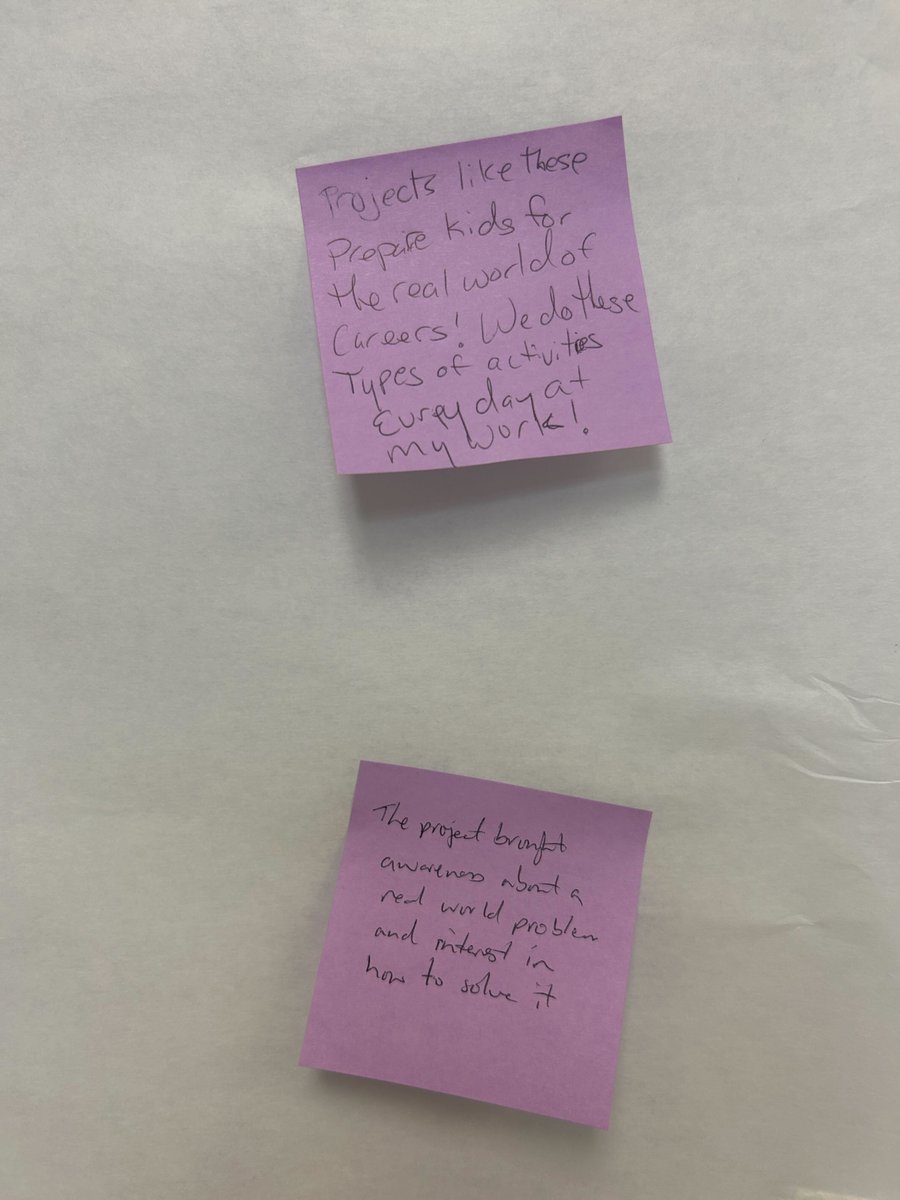 Projects like these
Prepare kids for
the real world of
Careers! We do these
Types of activities
Eurey day at
my work!
The project brought
awareness about a
real world problem
and interest in
how to solve it